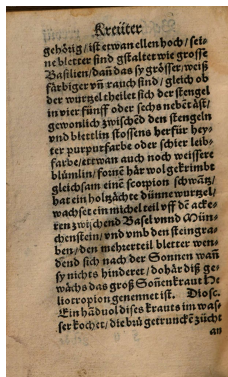 Kreüter
gehörig / ist etwan ellen hoch / sei-
ne bletter sind gstaltet wie grosse
Basilien / dañ das sy grösser / weiß
färbiger vñ rauch sind / gleich ob
der wurtzel theilet sich der stengel
in vier fünff oder sechs nebẽt äst /
gewonlich zwischẽd den stengeln
vnd blettlin stossens herfür hey-
ter purpurfarbe oder schier leib-
farbe / ettwan auch noch weissere
blůmlin / fornẽ här wol gekrimbt
gleichsam einẽ scorpion schwãtz /
hat ein holtzächte dünne wurtzel /
wachset ein michel teil vff dẽ acke-
ren zwischend Basel vnnd Mün-
chenstein / vnd vmb den steingra-
ben / den mehrerteil bletter wen-
dend sich nach der Sonnen wañ
sy nichts hinderet / dohär diß ge-
wächs das groß Sonẽnkraut He
liotropion genennet ist. Diosc.
Ein hãd vol dises krauts im was-
ser kochet / die brů getrunckẽ zücht
an